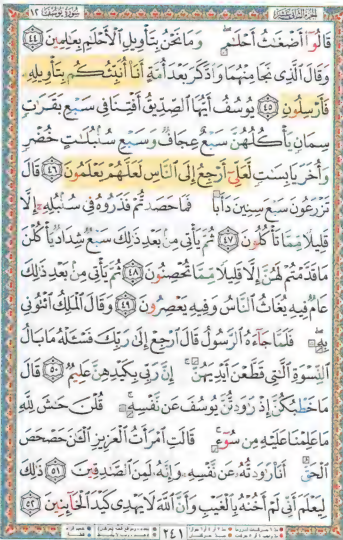 سورة يوسف ١٢
قَالُوٓا۟ أَضْغَٰثُ أَحْلَٰمٍ وَمَا نَحْنُ بِتَأْوِيلِ ٱلْأَحْلَٰمِ بِعَٰلِمِينَ ٤٤
وَقَالَ ٱلَّذِى نَجَا مِنْهُمَا وَٱدَّكَرَ بَعْدَ أُمَّةٍ أَنَا۠ أُنَبِّئُكُم بِتَأْوِيلِهِۦ
فَأَرْسِلُونِ ٤٥ يُوسُفُ أَيُّهَا ٱلصِّدِّيقُ أَفْتِنَا فِى سَبْعِ بَقَرَٰتٍ
سِمَانٍ يَأْكُلُهُنَّ سَبْعٌ عِجَافٌ وَسَبْعِ سُنۢبُلَٰتٍ خُضْرٍ
وَأُخَرَ يَابِسَٰتٍ لَّعَلِّىٓ أَرْجِعُ إِلَى ٱلنَّاسِ لَعَلَّهُمْ يَعْلَمُونَ ٤٦ قَالَ
تَزْرَعُونَ سَبْعَ سِنِينَ دَأَبًا فَمَا حَصَدتُّمْ فَذَرُوهُ فِى سُنۢبُلِهِۦٓ إِلَّا
قَلِيلًا مِّمَّا تَأْكُلُونَ ٤٧ ثُمَّ يَأْتِى مِنۢ بَعْدِ ذَٰلِكَ سَبْعٌ شِدَادٌ يَأْكُلْنَ
مَا قَدَّمْتُمْ لَهُنَّ إِلَّا قَلِيلًا مِّمَّا تُحْصِنُونَ ٤٨ ثُمَّ يَأْتِى مِنۢ بَعْدِ ذَٰلِكَ
عَامٌ فِيهِ يُغَاثُ ٱلنَّاسُ وَفِيهِ يَعْصِرُونَ ٤٩ وَقَالَ ٱلْمَلِكُ ٱئْتُونِى
بِهِۦ فَلَمَّا جَآءَهُ ٱلرَّسُولُ قَالَ ٱرْجِعْ إِلَىٰ رَبِّكَ فَسْـَٔلْهُ مَا بَالُ
ٱلنِّسْوَةِ ٱلَّٰتِى قَطَّعْنَ أَيْدِيَهُنَّ إِنَّ رَبِّى بِكَيْدِهِنَّ عَلِيمٌ ٥٠ قَالَ
مَا خَطْبُكُنَّ إِذْ رَٰوَدتُّنَّ يُوسُفَ عَن نَّفْسِهِۦ قُلْنَ حَٰشَ لِلَّهِ
مَا عَلِمْنَا عَلَيْهِ مِن سُوٓءٍ قَالَتِ ٱمْرَأَتُ ٱلْعَزِيزِ ٱلْـَٰٔنَ حَصْحَصَ
ٱلْحَقُّ أَنَا۠ رَٰوَدتُّهُۥ عَن نَّفْسِهِۦ وَإِنَّهُۥ لَمِنَ ٱلصَّٰدِقِينَ ٥١ ذَٰلِكَ
لِيَعْلَمَ أَنِّى لَمْ أَخُنْهُ بِٱلْغَيْبِ وَأَنَّ ٱللَّهَ لَا يَهْدِى كَيْدَ ٱلْخَآئِنِينَ ٥٢
٢٤١